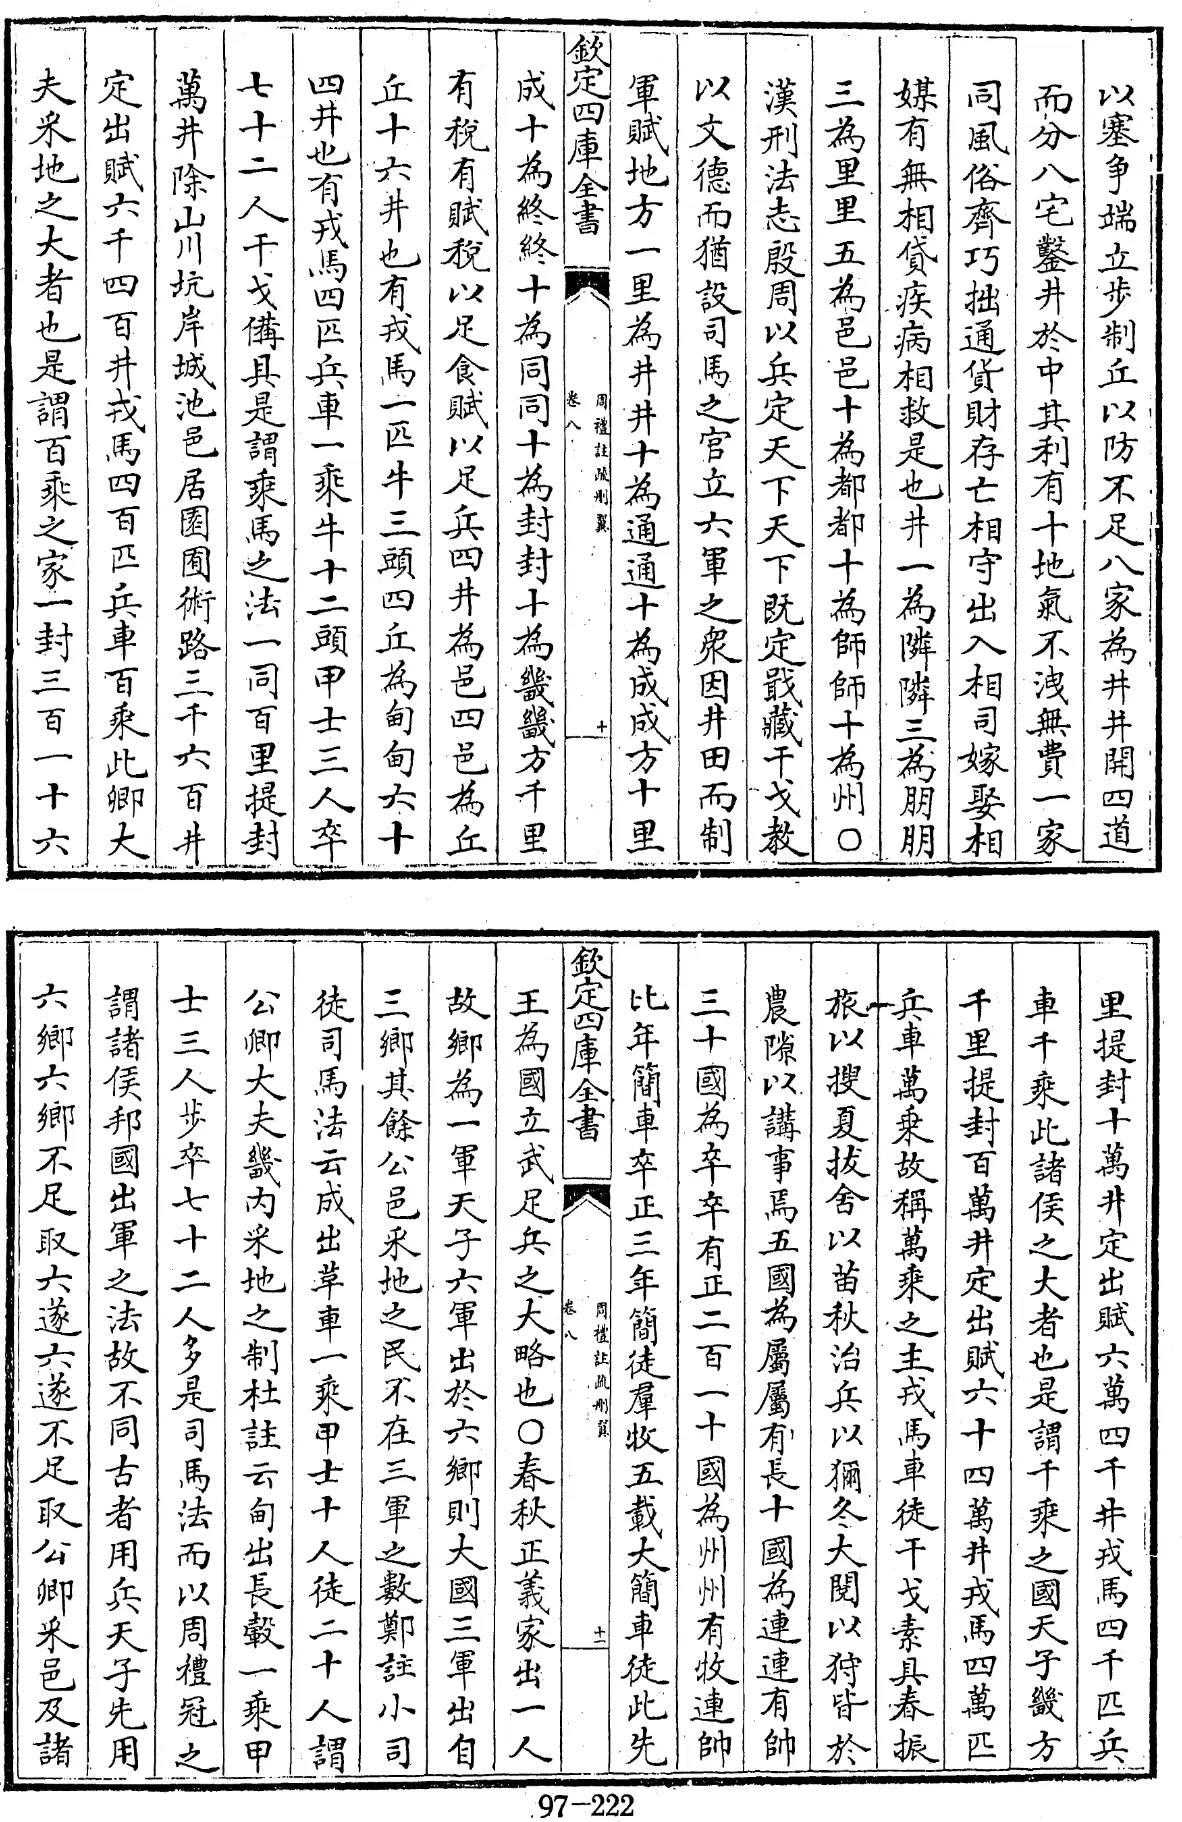 以塞争端立步制丘以防不足八家為井井開四道
而分八宅鑿井於中其利有十地氣不洩無費一家
同風俗齊巧拙通貨財存亡相守出入相司嫁娶相
媒有無相貸疾病相救是也井一為隣隣三為朋朋
三為里里五為邑邑十為都都十為師師十為州〇
漢刑法志殷周以兵定天下天下既定戢藏干戈教
以文德而猶設司馬之官立六軍之衆因井田而制
軍賦地方一里為井井十為通通十為成成方十里
欽定四庫全書
周禮註疏刪翼
卷八
十
成十為終終十為同同十為封封十為畿畿方千里
有稅有賦稅以足食賦以足兵四井為邑四邑為丘
丘十六井也有戎馬一匹牛三頭四丘為甸甸六十
四井也有戎馬四匹兵車一乘牛十二頭甲士三人卒
七十二人干戈備具是謂乘馬之法一同百里提封
萬井除山川坑岸城池邑居園囿術路三千六百井
定出賦六千四百井戎馬四百匹兵車百乘此卿大
夫采地之大者也是謂百乘之家一封三百一十六
里提封十萬井定出賦六萬四千井戎馬四千匹兵
車千乘此諸侯之大者也是謂千乘之國天子畿方
千里提封百萬井定出賦六十四萬井戎馬四萬匹
兵車萬乗故稱萬乘之主戎馬車徒干戈素具春振
旅以搜夏拔舍以苗秋治兵以獮冬大閱以狩皆於
農隙以講事焉五國為屬屬有長十國為連連有帥
三十國為卒卒有正二百一十國為州州有牧連帥
比年簡車卒正三年簡徒羣牧五載大簡車徒此先
欽定四庫全書
周禮註疏刪翼
卷八
十一
王為國立武足兵之大略也〇春秋正義家出一人
故鄉為一軍天子六軍出於六鄉則大國三軍出自
三鄉其餘公邑采地之民不在三軍之數鄭註小司
徒司馬法云成出革車一乘甲士十人徒二十人謂
公卿大夫畿内采地之制杜註云甸出長轂一乘甲
士三人步卒七十二人多是司馬法而以周禮冠之
謂諸侯邦國出軍之法故不同古者用兵天子先用
六鄉六鄉不足取六遂六遂不足取公卿采邑及諸
97-222